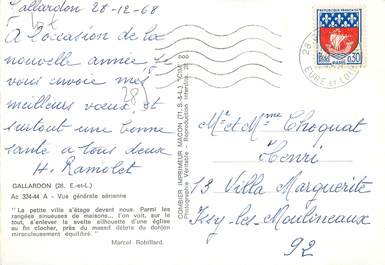 Gallardon 28-12-68
A l'occasion de la
nouvelle année je
vous envoie mes
meilleurs vœux et
surtout une bonne
santé a tous deux
H. Ramolet
GALLARDON (28. E.-et-L.)
Ac 324-44 A - Vue générale aérienne
"La petite ville s'étage devant nous. Parmi les
rangées sinueuses de maisons..., l'on voit, sur le
tout, s'enlever la svelte silhouette d'une église
au fin clocher, près du massif débris du donjon
miraculeusement équilibré."
Marcel Robillard.
COMBIER IMPRIMEUR MACON (71. S.-&-L.) "CIM"
Photographie Véritable - Reproduction Interdite
REPUBLIQUE FRANÇAISE
PARIS 0,30
POSTES
28
EURE ET LOIR
Mr et Mme Choquat
Henri
13 Villa Marguerite
Issy-les-Moulineaux
92